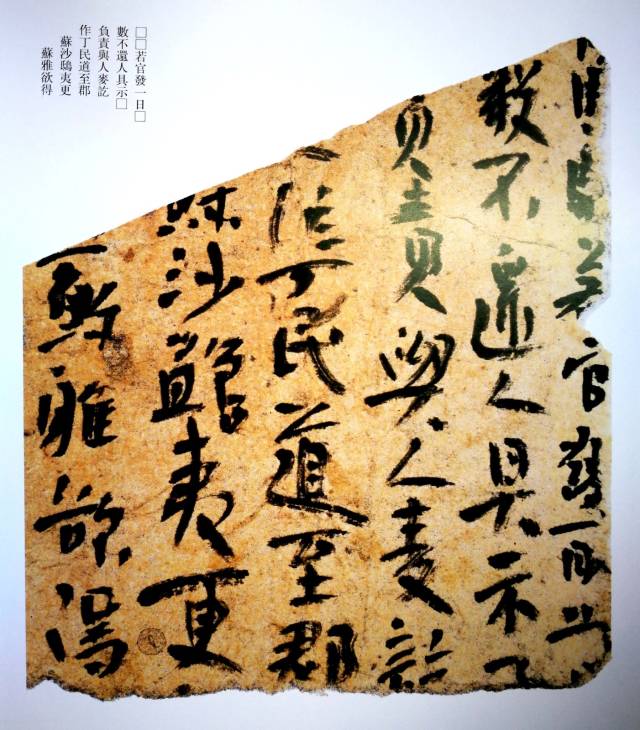 □□若官發一日□
數不還人具示□
負責與人麥訖
作丁民道至郡
蘇沙鴟夷更
蘇雅欲得
若官發一日
數不還人具示
負責與人麥訖
作丁民道至郡
蘇沙鴟夷更
蘇雅欲得